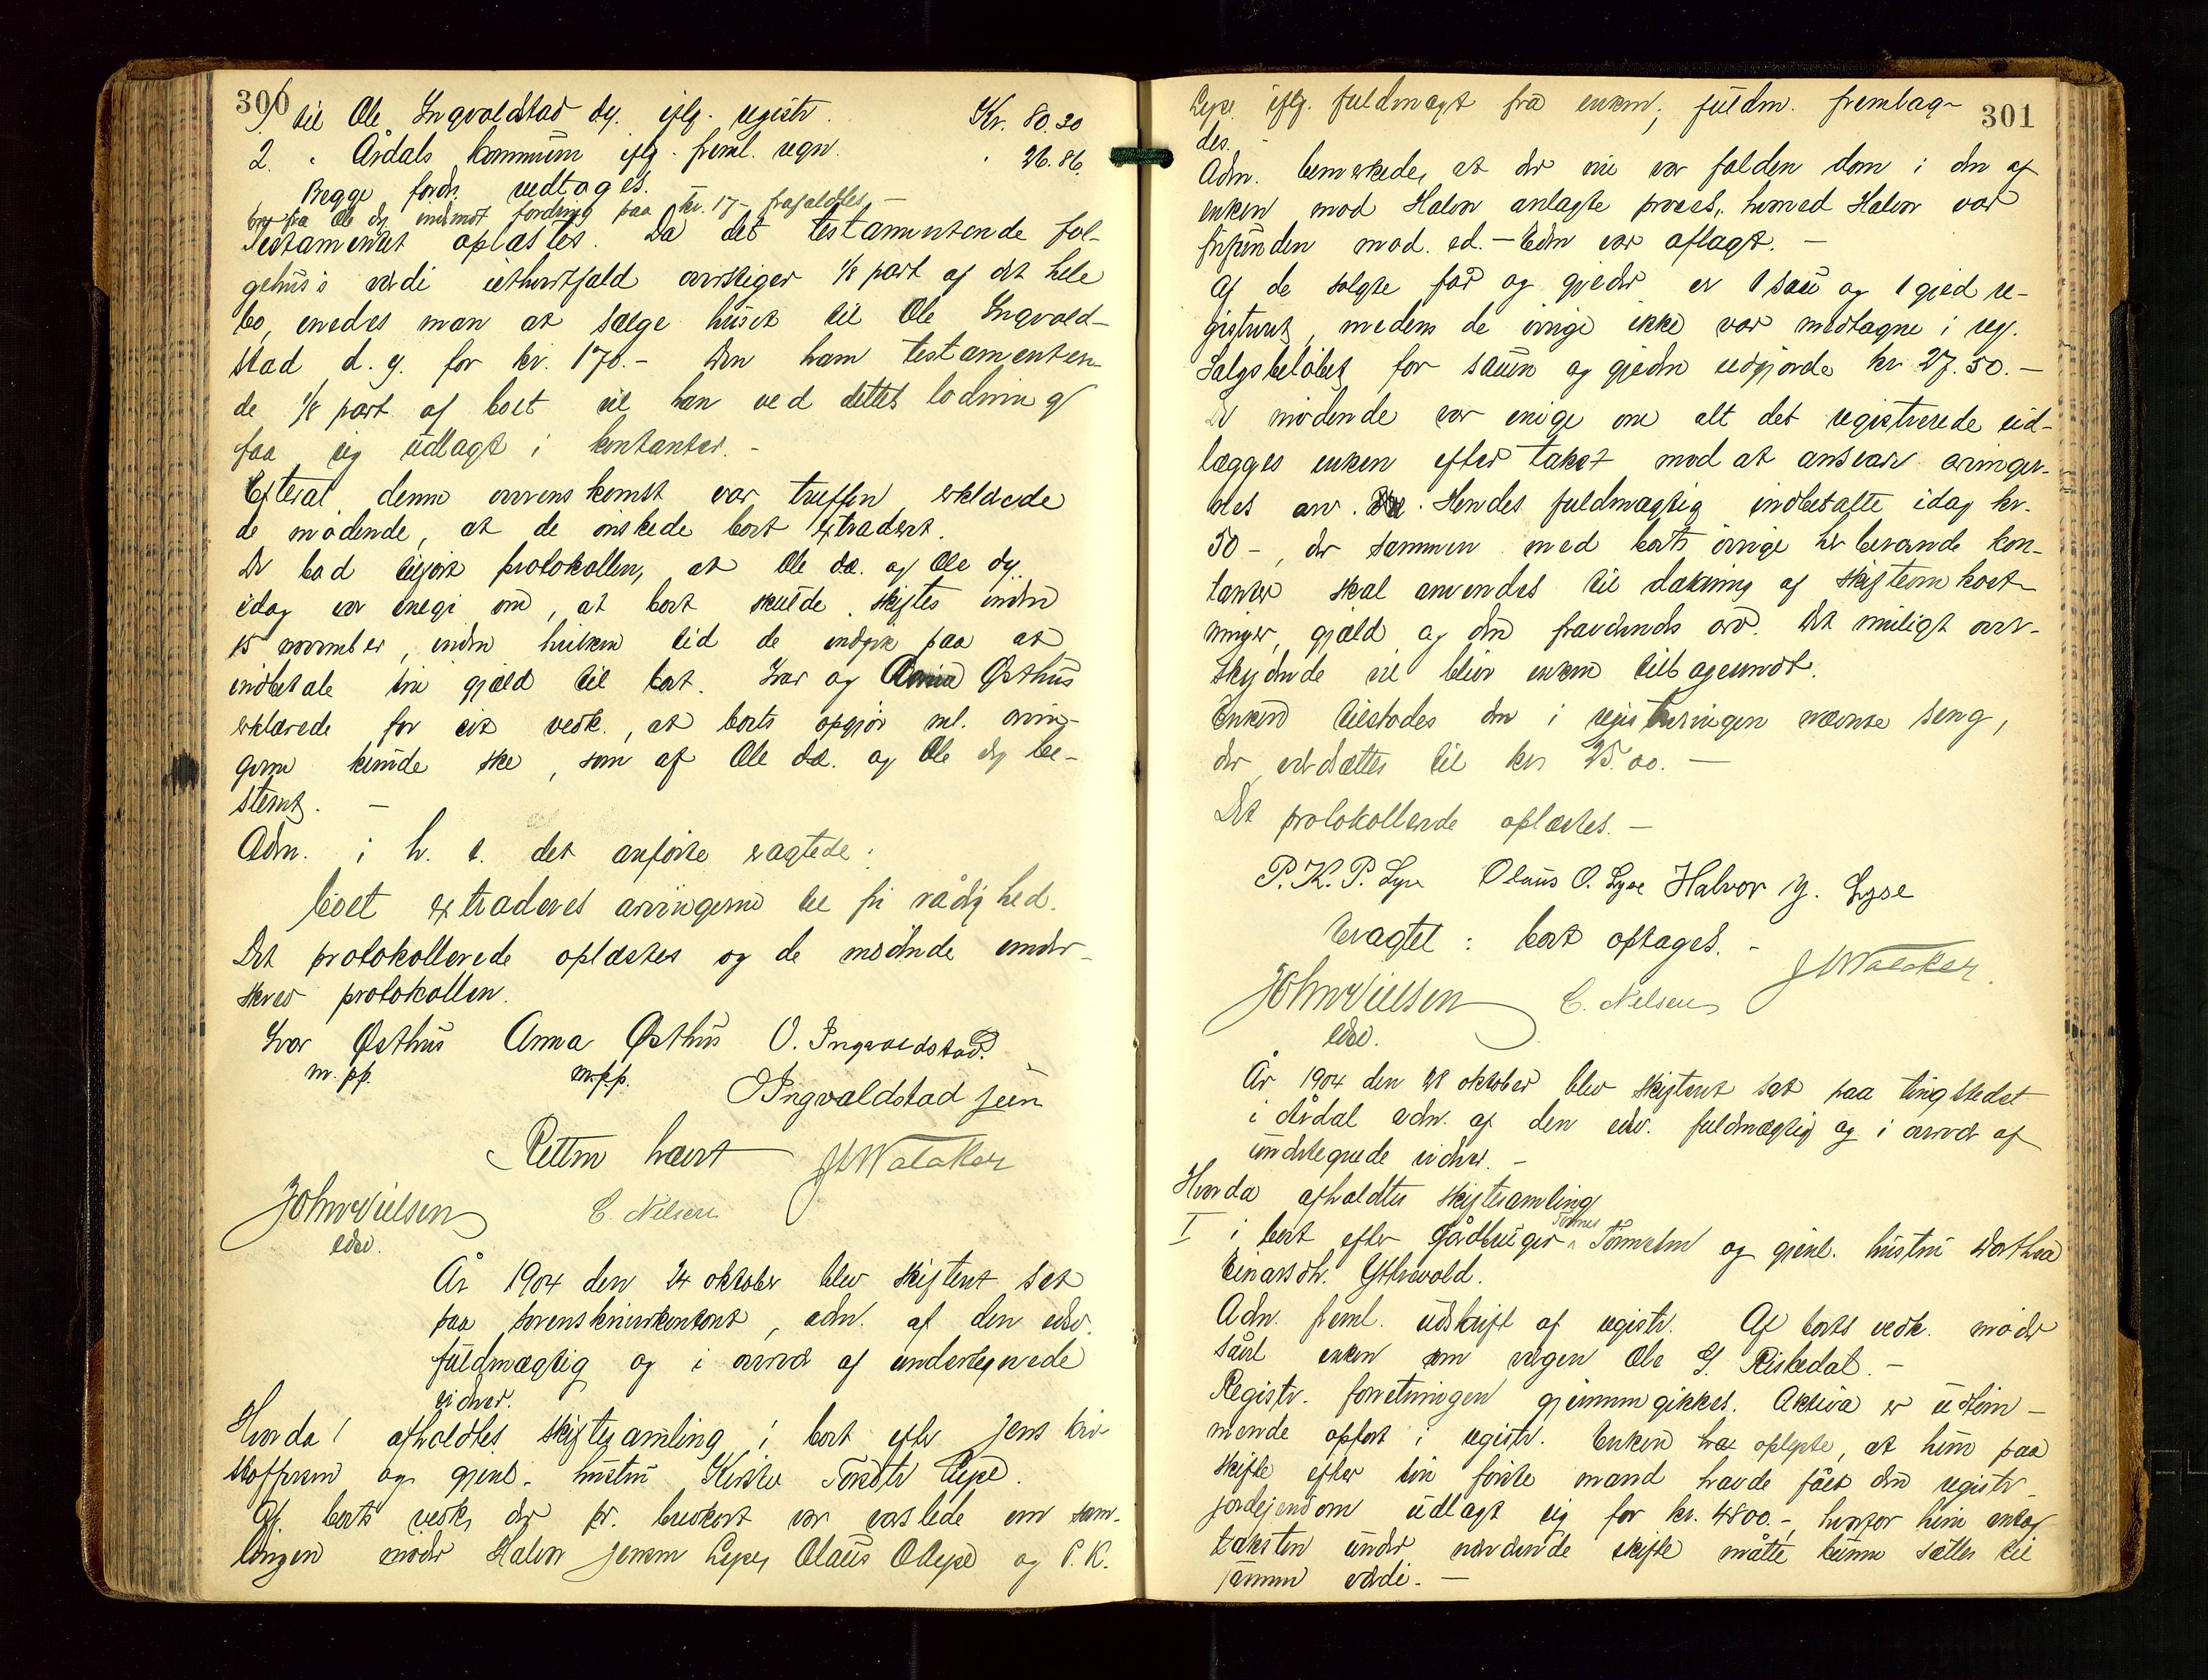 300
1/ til Ole Ingvaldstad dy. iflg. registr. Kr. 80.20
2. " Årdals kommune iflg. freml. regn. " 26.86.
Begge fordr. vedtages.
fra Ole dy. indmeldt fordring paa kr. 17- frafaldtes. -
Testamentet oplæstes. Da det testamenterede føl-
gehus's værdi iethvertfald overstiger 1/8 part af det hele
bo, enedes man at sælge huset til Ole Ingvald-
stad d. y. for kr. 170.- Den ham testamentere-
de 1/8 part af boet vil han ved dettes lodning
faa sig udlagt i kontanter. -
Efterat denne overenskomst var truffen erklærede
de mødende, at de ønskede boet extraderet.
De bad tilført protokollen, at Ole d.æ. og Ole dy.
idag var enige om, at boet skulde skiftes inden
15 november, inden hvilken tid de indgik paa at
indbetale sin gjæld til boet. Ivar og Anna Østhus
erklærede for sit vedk., at boets opgjør ml. arvin-
gerne kunde ske, som af Ole d.æ. og Ole dy be-
stemt. -
Adm. i h. t. det anførte eragtede:
boet extraderes arvingerne til fri rådighed.
Det protokollerede oplæstes og de mødende under-
skrev protokollen.
Ivar Østhus Anna Østhus O. Ingvaldstad.
m. p.p. m.p.p.
O Ingvaldstad jun
Retten hævet JM Walaker
John Nielsen C. Nilsen
edsv.
År 1904 den 24 oktober blev skifteret sat
paa sorenskriverkontoret, adm. af den edsv.
fuldmægtig og i overvær af undertegnede
vidner.
Hvorda! afholdtes skiftesamling i boet efter Jens Kri-
stoffersen og gjenl. hustru Kirsten Torsdtr Lyse.
Af boets vedk, der pr. brevkort var varslede om sam-
lingen mødte Halvor Jensen Lyse, Olaus O Lyse og P. K.
301
Lyse iflg. fuldmagt fra enken; fuldm. fremlag-
des. -
Adm. bemærkede, at der nu var falden dom i den af
enken mod Halvor anlagte proces, hvorved Halvor var
frifunden mod ed. - Eden var aflagt. -
Af de solgte får og gjeder er 1 sau og 1 gjed re-
gistreret, medens de øvrige ikke var medtagne i reg.
Salgsbeløbet for sauen og gjeden udgjorde kr 27.50. -
De mødende var enige om alt det registrerede ud-
lægges enken efter takst mod at ansvare arvinger-
nes arv. Hendes fuldmægtig indbetalte idag kr.
50 -, der sammen med boets øvrige herberoende kon-
tanter skal anvendes til dækning af skifteomkost-
ninger, gjæld og den fraværendes arv. Det muligt over-
skydende vil bliv enken tilbagesendt.
Enken tilstodes den i registreringen nævnte seng,
der værdsættes til kr 25.00. -
Det protokollerede oplæstes. -
P. K. P. Lyse Olaus O. Lyse Halvor J. Lyse
Eragtet: boet optages. -
JM Walaker
John Nielsen C. Nilsen
edsv.
År 1904 den 28 oktober blev skifteret sat paa tingstedet
i Årdal adm. af den edsv. fuldmægtig og i overvær af
undertegnede vidner. -
Hvorda afholdtes skiftesamling
I i boet efter Gårdbruger Tønnes Tønnesen og gjenl. hustru Dorthea
Einarsdtr. Ytthavold.
Adm. freml. udskrift af registr. Af boets vedk. mødte
såvel enken som vergen Ole G. Riskedal. -
Registr. forretningen gjennemgikkes. Aktiva er udtøm-
mende opført i registr. Enken oplyste, at hun paa
skifte efter sin første mand havde fået den registr.
jordejendom udlagt sig for kr. 4800.-, hvorfor hun antog
taksten under nærværende skifte måtte kunne sættes til
samme værdi. -